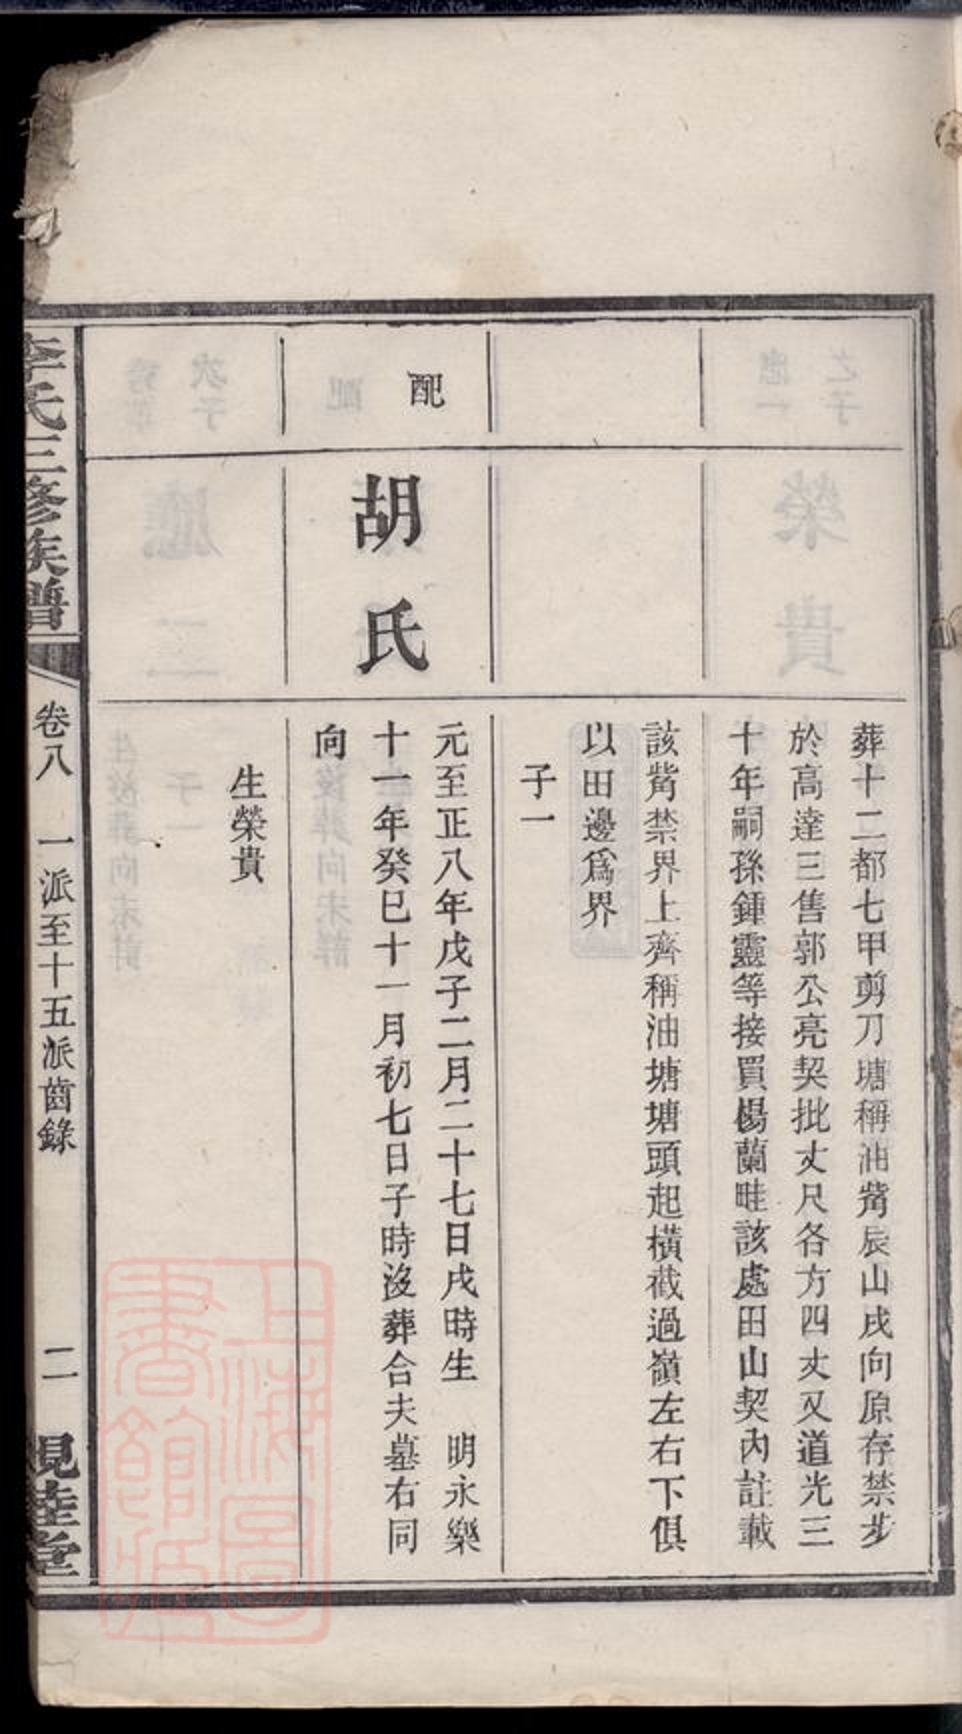 葬十二都七甲剪刀塘稱油嵴辰山戌向原存禁步
於高達三售郭公亮契批丈尺各方四丈又道光三
十年嗣孫鍾靈等接買楊蘭畦該處田山契內註載
該嵴禁界上齊稱油塘塘頭起橫截過嶺左右下俱
以田邊爲界
子一
配
胡氏
元至正八年戊子二月二十七日戌時生 明永樂
十一年癸巳十一月初七日子時沒葬合夫墓右同
向
生榮貴
李氏三修族譜
卷八 一派至十五派齒錄
二
上海圖書館藏